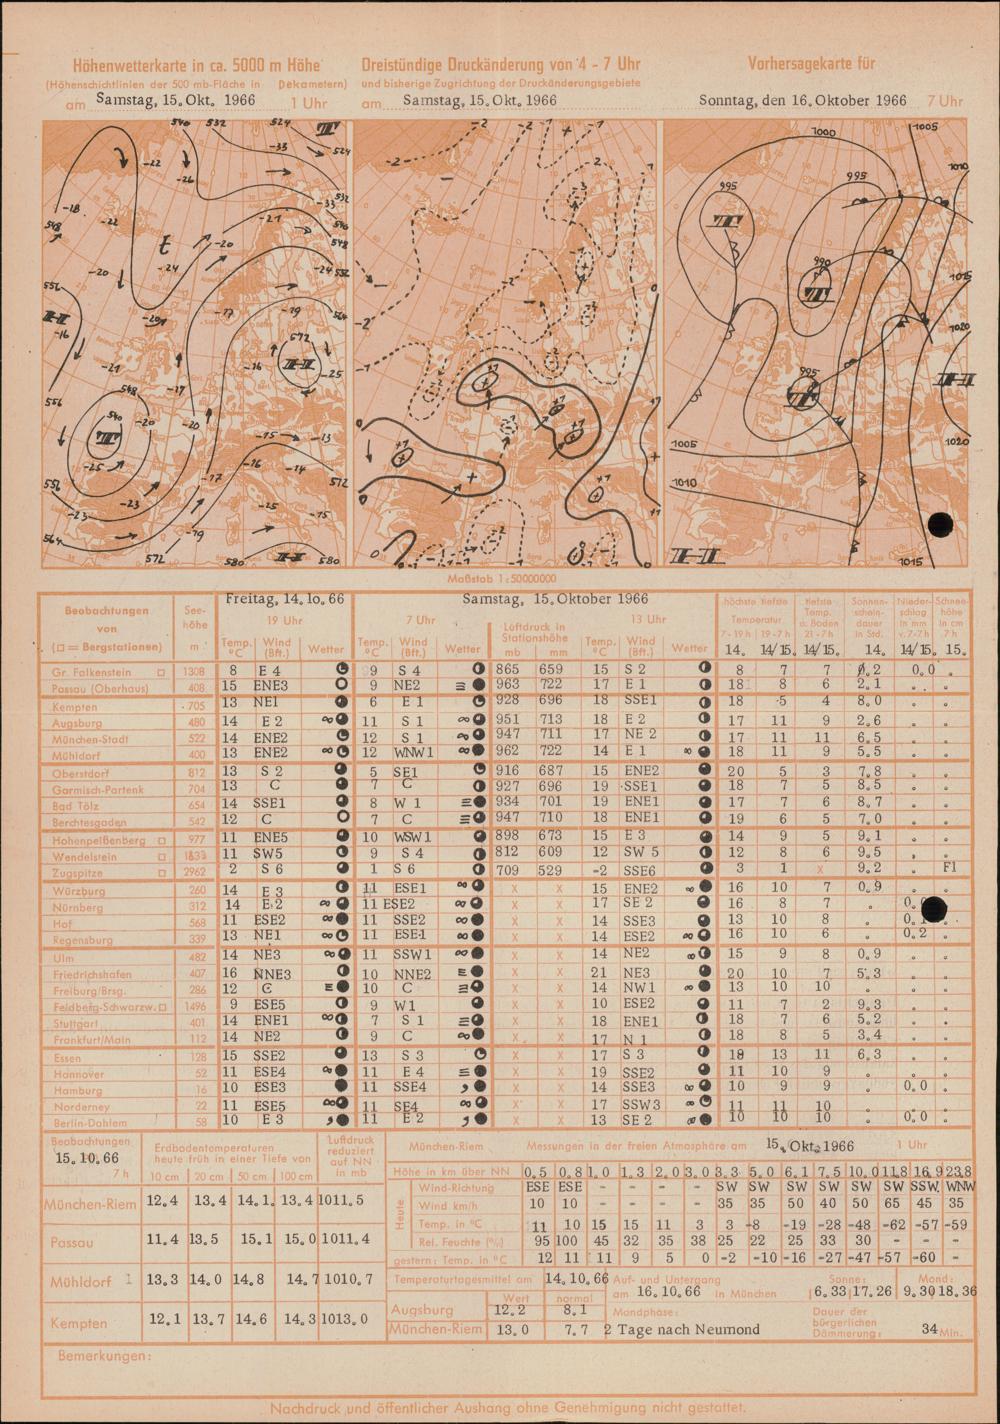 Höhenwetterkarte in ca. 5000 m Höhe
(Höhenschichtlinien der 500 mb-Fläche in Dekametern)
am Samstag, 15. Okt. 1966 1 Uhr
Dreistündige Druckänderung von 4 - 7 Uhr
und bisherige Zugrichtung der Druckänderungsgebiete
am Samstag, 15. Okt. 1966
Vorhersagekarte für
Sonntag, den 16. Oktober 1966 7 Uhr
Maßstab 1:50000000
Beobachtungen von (□ = Bergstationen)
See-höhe m
Freitag, 14.10.66
19 Uhr
Samstag, 15. Oktober 1966
7 Uhr
13 Uhr
Temp. °C Wind (Bft.) Wetter Temp. °C Wind (Bft.) Wetter Luftdruck in Stationshöhe mb mm Temp. °C Wind (Bft.) Wetter
höchste tiefste Temperatur 7-19h 19-7h
tiefste Temp. a. Boden 21-7h
Sonnen-schein-dauer in Std.
Nieder-schlag in mm v. 7-7h
Schnee-höhe in cm 7h
14. 14/15. 14/15. 14. 14/15. 15.
Gr. Falkenstein □ 1308 8 E 4 9 S 4 865 659 15 S 2 8 7 7 0.2 0.0 .
Passau (Oberhaus) 408 15 ENE3 9 NE2 ≡ 963 722 17 E 1 18 8 6 2.1 . .
Kempten 705 13 NE1 6 E 1 928 696 18 SSE1 18 5 4 8.0 . .
Augsburg 480 14 E 2 ∞ 11 S 1 ∞ 951 713 18 E 2 17 11 9 2.6 . .
München-Stadt 522 14 ENE2 12 S 1 ∞ 947 711 17 NE 2 17 11 11 6.5 . .
Mühldorf 400 13 ENE2 ∞ 12 WNW1 ∞ 962 722 14 E 1 ∞ 18 11 9 5.5 . .
Oberstdorf 812 13 S 2 5 SE1 916 687 15 ENE2 20 5 3 7.8 . .
Garmisch-Partenk 704 13 C 7 C 927 696 19 SSE1 18 7 5 8.5 . .
Bad Tölz 654 14 SSE1 8 W 1 ≡ 934 701 19 ENE1 17 7 6 8.7 . .
Berchtesgaden 542 12 C 7 C ≡ 947 710 18 ENE1 19 6 5 7.0 . .
Hohenpeißenberg □ 977 11 ENE5 10 WSW1 898 673 15 E 3 14 9 5 9.1 . .
Wendelstein □ 1833 11 SW5 9 S 4 812 609 12 SW 5 12 8 6 9.5 . .
Zugspitze □ 2962 2 S 6 1 S 6 709 529 -2 SSE6 3 1 x 9.2 . Fl
Würzburg 260 14 E 3 11 ESE1 ∞ x x 15 ENE2 ∞ 16 10 7 0.9
Nürnberg 312 14 E 2 ∞ 11 ESE2 ∞ x x 17 SE 2 16 8 7 . 0.
Hof 568 11 ESE2 ∞ 11 SSE2 ∞ x x 14 SSE3 13 10 8 . 0.
Regensburg 339 13 NE1 ∞ 11 ESE1 ∞ x x 14 ESE2 ∞ 16 10 6 . 0.2 .
Ulm 482 14 NE3 ∞ 11 SSW1 ∞ x x 14 NE2 ∞ 15 9 8 0.9 . .
Friedrichshafen 407 16 NNE3 10 NNE2 ≡ x x 21 NE3 20 10 7 5.3 . .
Freiburg/Brsg. 286 12 C ≡ 10 C ≡ x x 14 NW1 ∞ 13 10 10 . . .
Feldberg-Schwarzw. □ 1496 9 ESE5 9 W1 x x 10 ESE2 11 7 2 9.3 . .
Stuttgart 401 14 ENE1 ∞ 7 S 1 ≡ x x 18 ENE1 18 7 6 5.2 . .
Frankfurt/Main 112 14 NE2 9 C ∞ x x 17 N 1 18 8 5 3.4 . .
Essen 128 15 SSE2 13 S 3 x x 17 S 3 18 13 11 6.3 . .
Hannover 52 11 ESE4 ∞ 11 E 4 ≡ x x 19 SSE2 11 10 9 . . .
Hamburg 16 10 ESE3 11 SSE4 , x x 14 SSE3 ∞ 10 9 9 . 0.0 .
Norderney 22 11 ESE5 ∞ 11 SE4 ∞ x x 17 SSW3 ∞ 11 11 10 . . .
Berlin-Dahlem 58 10 E 3 , 11 E 2 , x x 13 SE 2 ∞ 10 10 10 . 0.0 .
Beobachtungen 15.10.66 7 h
Erdbodentemperaturen heute früh in einer Tiefe von
10 cm 20 cm 50 cm 100 cm
Luftdruck reduziert auf NN in mb
München-Riem 12.4 13.4 14.1 13.4 1011.5
Passau 11.4 13.5 15.1 15.0 1011.4
Mühldorf 13.3 14.0 14.8 14.7 1010.7
Kempten 12.1 13.7 14.6 14.3 1013.0
München-Riem Messungen in der freien Atmosphäre am 15. Okt. 1966 1 Uhr
Höhe in km über NN 0,5 0,8 1,0 1,3 2,0 3,0 3,3 5,0 6,1 7,5 10,0 11,8 16,9 23,8
Heute
Wind-Richtung ESE ESE - - - - SW SW SW SW SW SW SSW WNW
Wind km/h 10 10 - - - - 35 35 50 40 50 65 45 35
Temp. in °C 11 10 15 15 11 3 3 -8 -19 -28 -48 -62 -57 -59
Rel. Feuchte (%) 95 100 45 32 35 38 25 22 25 33 30 - - -
gestern: Temp. in °C 12 11 11 9 5 0 -2 -10 -16 -27 -47 -57 -60 -
Temperaturtagesmittel am 14.10.66
Wert normal
Augsburg 12.2 8.1
München-Riem 13.0 7.7
Auf- und Untergang am 16.10.66 in München
Sonne: 6.33 17.26
Mond: 9.30 18.36
Mondphase:
2 Tage nach Neumond
Dauer der bürgerlichen Dämmerung: 34 Min.
Bemerkungen:
Nachdruck und öffentlicher Aushang ohne Genehmigung nicht gestattet.